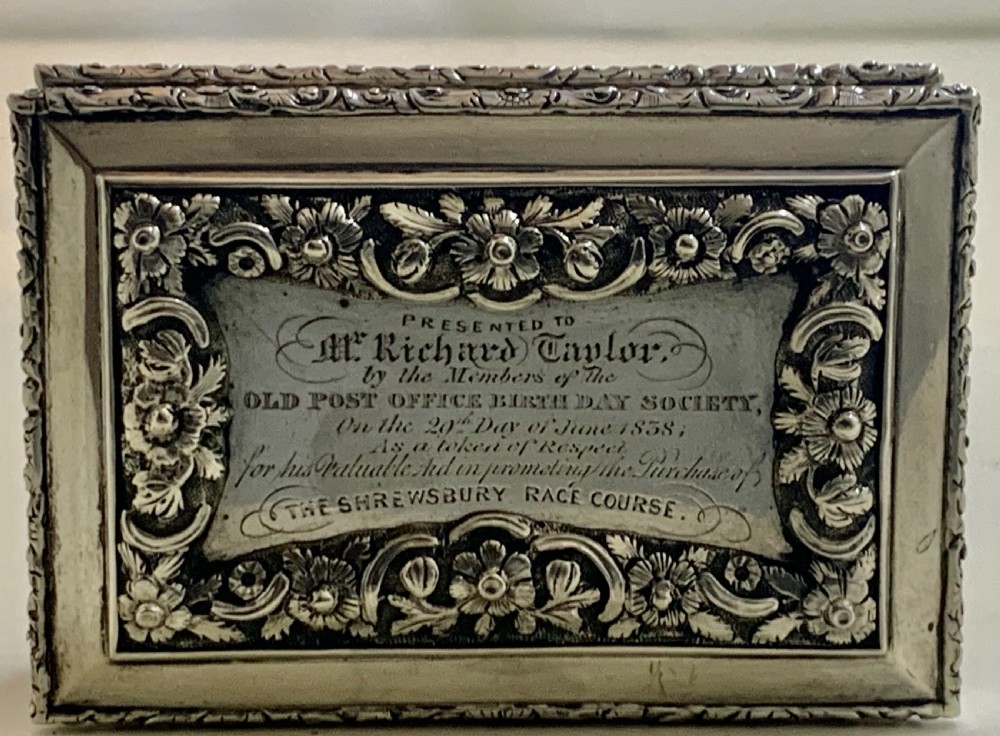 PRESENTED TO
Mr. Richard Taylor.
by the Members of the
OLD POST OFFICE BIRTH DAY SOCIETY,
On the 20th Day of June 1838;
As a token of Respect
for his Valuable Aid in promoting the Purchase of
THE SHREWSBURY RACE COURSE.